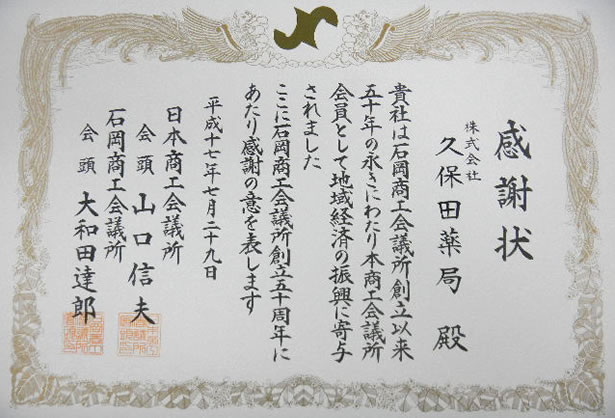 感謝状
株式会社
久保田薬局 殿
貴社は石岡商工会議所創立以来
五十年の永きにわたり本商工会議所
会員として地域経済の振興に寄与
されました
ここに石岡商工会議所創立五十周年に
あたり感謝の意を表します
平成十七年七月二十九日
日本商工会議所
会頭 山口信夫
石岡商工会議所
会頭 大和田達郎